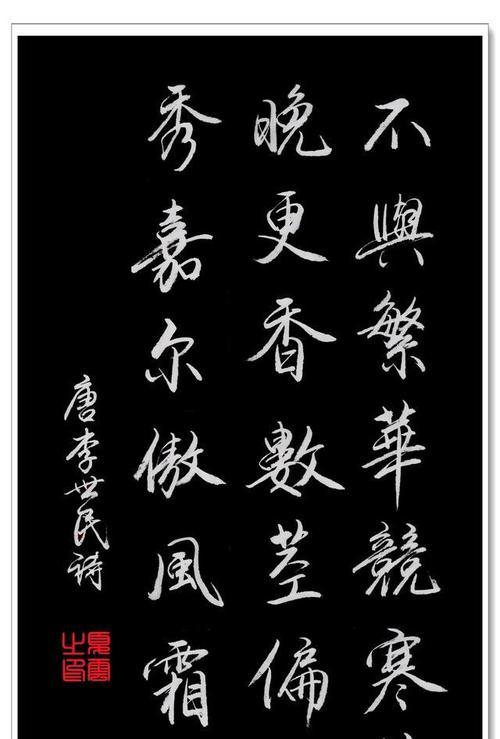 不與繁華競寒
晚更香數莖偏
秀嘉尔傲風霜
唐李世民詩